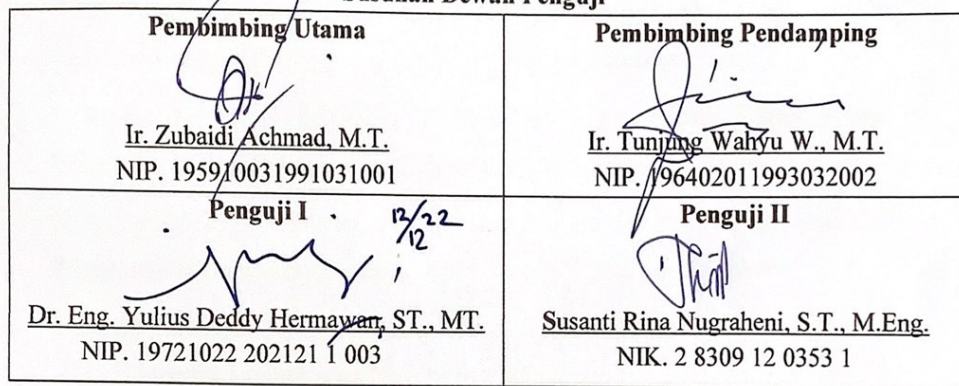 Susunan Dewan Penguji
Pembimbing Utama
Ir. Zubaidi Achmad, M.T.
NIP. 195910031991031001
Pembimbing Pendamping
Ir. Tunjung Wahyu W., M.T.
NIP. 196402011993032002
Penguji I
12/22
12
Dr. Eng. Yulius Deddy Hermawan, ST., MT.
NIP. 19721022 202121 1 003
Penguji II
Susanti Rina Nugraheni, S.T., M.Eng.
NIK. 2 8309 12 0353 1